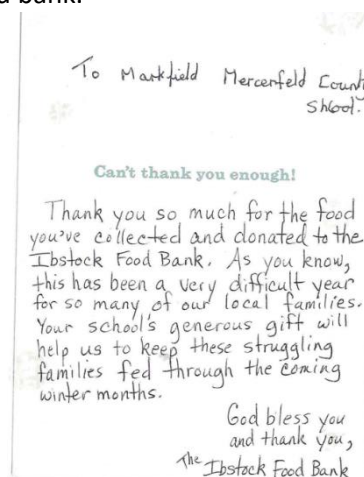 bank.
To Markfield Mercerfeld Count
Shool.
Can't thank you enough!
Thank you so much for the food
you've collected and donated to the
Ibstock Food Bank. As you know,
this has been a very difficult year
for so many of our local families.
Your school's generous gift will
help us to keep these struggling
families fed through the coming
winter months.
God bless you
and thank you,
The Ibstock Food Bank